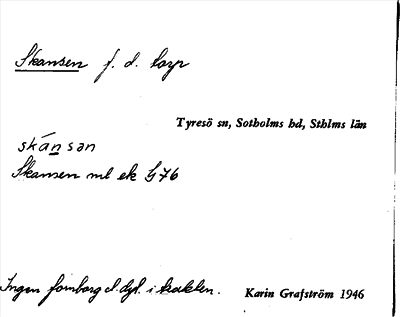 Skansen f. d. torp
Tyresö sn, Sotholms hd, Sthlms län
skánsan
Skansen ml ek
Ingen fornborg d.dyl. i trakten.
Karin Grafström 1946